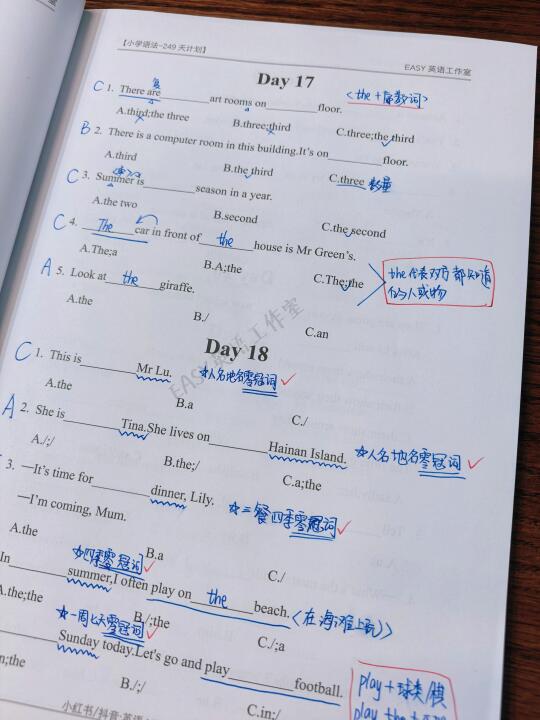 【小学语法-249天计划】
EASY 英语工作室
Day 17
C 1. There are________art rooms on________floor. <the+序数词>
A.third;the three B.three;third C.three;the third
B 2. There is a computer room in this building.It's on________floor.
A.third B.the third C.three 数量
C 3. Summer is________season in a year.
A.the two B.second C.the second
C 4. The car in front of the house is Mr Green's.
A.The;a B.A;the C.The;the
the代表双方都知道
的人或物
A 5. Look at the giraffe.
A.the B./ C.an
EASY 英语工作室
Day 18
C 1. This is________Mr Lu. ☆人名地名零冠词
A.the B.a C./
A 2. She is________Tina.She lives on________Hainan Island. ☆人名地名零冠词
A./;/ B.the;/ C.a;the
3. —It's time for________dinner, Lily. ☆三餐四季零冠词
—I'm coming, Mum.
A.the B.a C./
☆四季零冠词
In________summer,I often play on the beach. <在海滩上玩>
A.the;the B./;the C./;a
☆一周七天零冠词
Sunday today.Let's go and play________football.
n;the B./;/ C.in;/
play+球类/棋
play the+
小红书/抖音:英语